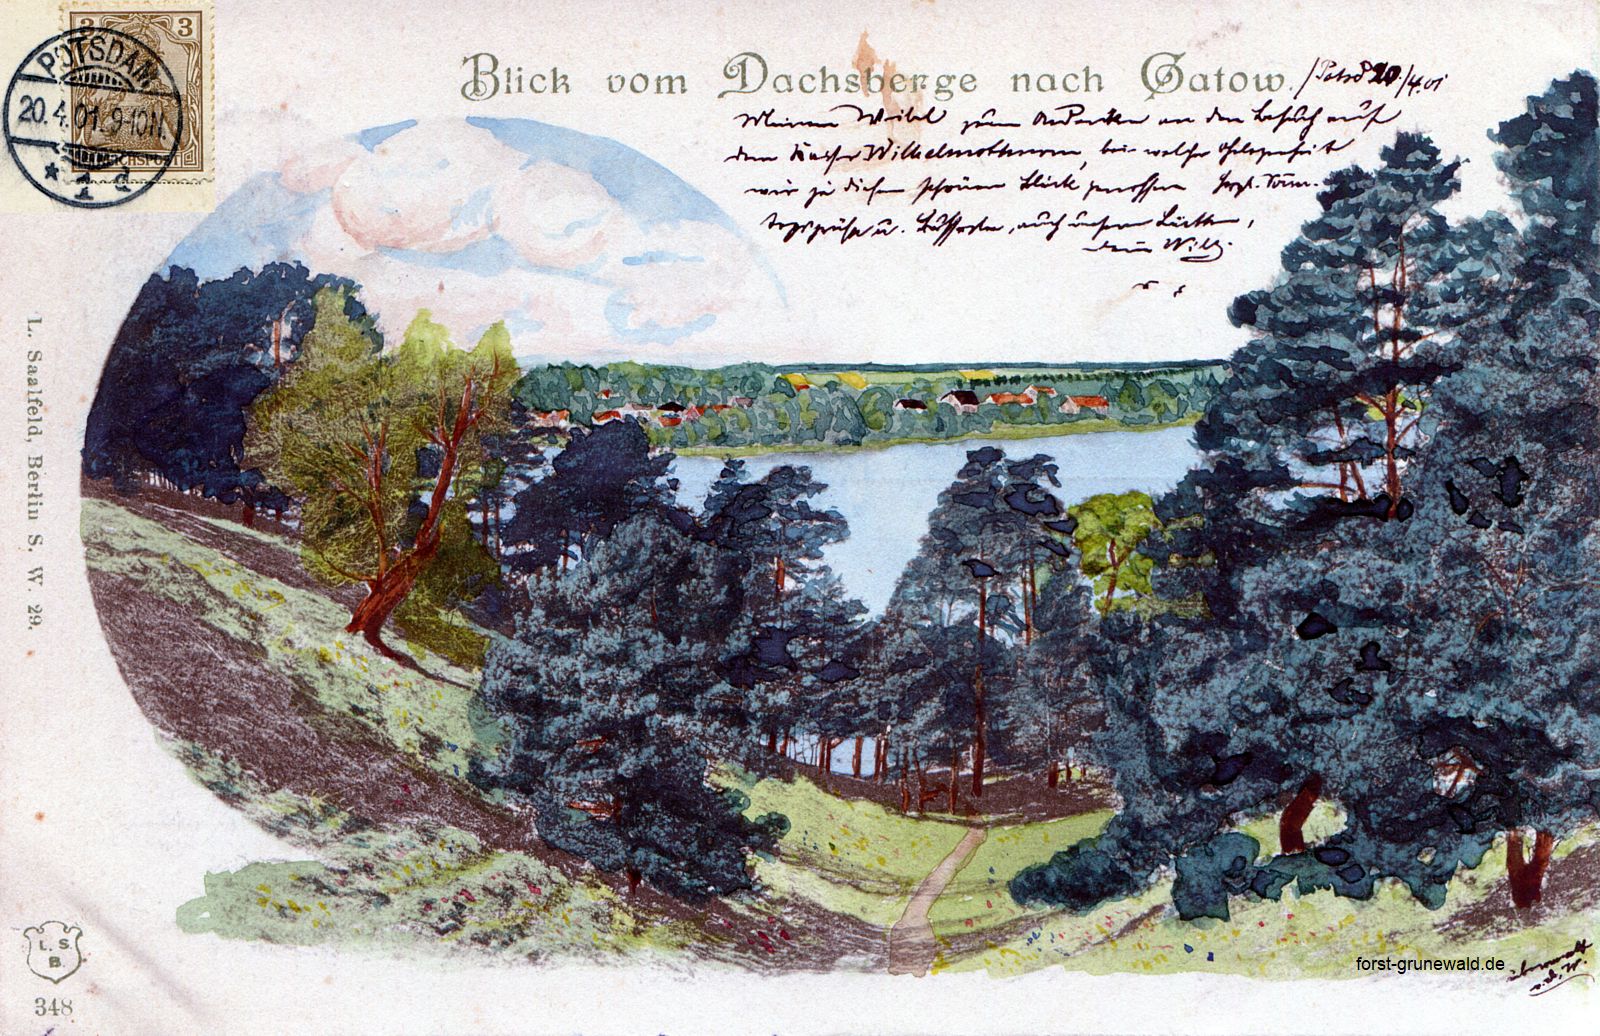 3 3
REICHSPOST
POTSDAM
20.4.01.9-10N.
* 1 d
Blick vom Dachsberge nach Gatow.
/Potsd 20./4.01
Meinem Weibel zum Andenken an den Besuch auf
dem Kaiser Wilhelmsthurm, bei welcher Gelegenheit
wir zu diesem schönen Blick genossen herzl. Sonn-
tagsgrüße u. Küsse, auch unsern
Dein Willy.
L. Saalfeld, Berlin S. W. 29.
L. S.
B.
348
forst-grunewald.de